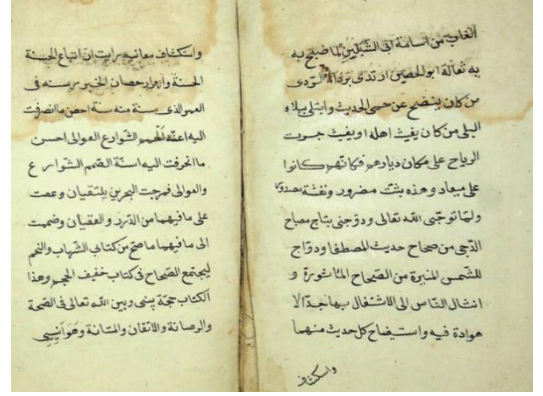 الغاب من اسامة ابى الشبلين لما ضبح به
به ثعالة ابو الحصين ارتدى الردى
من كان ينضح عن حسى الحديث وابتلى ببلاء
البلى من كان يغيث اهله اويغيث جرت
الرياح على مكان ديارهم فكانهم كانوا
على ميعاد وهذه بثت مضرور ونفثة مصدور
ولما توجنى الله تعالى ودوجنى بتاج مصباح
الدجى من صحاح حديث المصطفا ودواج
للشمس المنيرة من الصحاح الماثورة و
انثال الناس الى الاشتغال بهما
هوادة فيه واستيضاح كل حديث منهما
واستكشاف معانيه ان اتباع الحسنة
الحسنة حصان الخير برسنه فى
العمر الذى سنة منه سنة احصن ما انصرفت
اليه اعنة الهمم الشوارع العوالى احسن
ما انحرفت اليه اسنة الصمم الشوارع
والعوالى فمرجت البحرين يلتقيان وعمت
على ما فيهما من الدرر والعقيان وضممت
الى ما فيهما ما صح من كتاب الشهاب والنجم
ليجتمع الصحاح فى كتاب خفيف الحجم وهذا
الكتاب حجة بينى وبين الله تعالى فى الصحة
والرصانة والاتقان والمتانة وهو انيسى